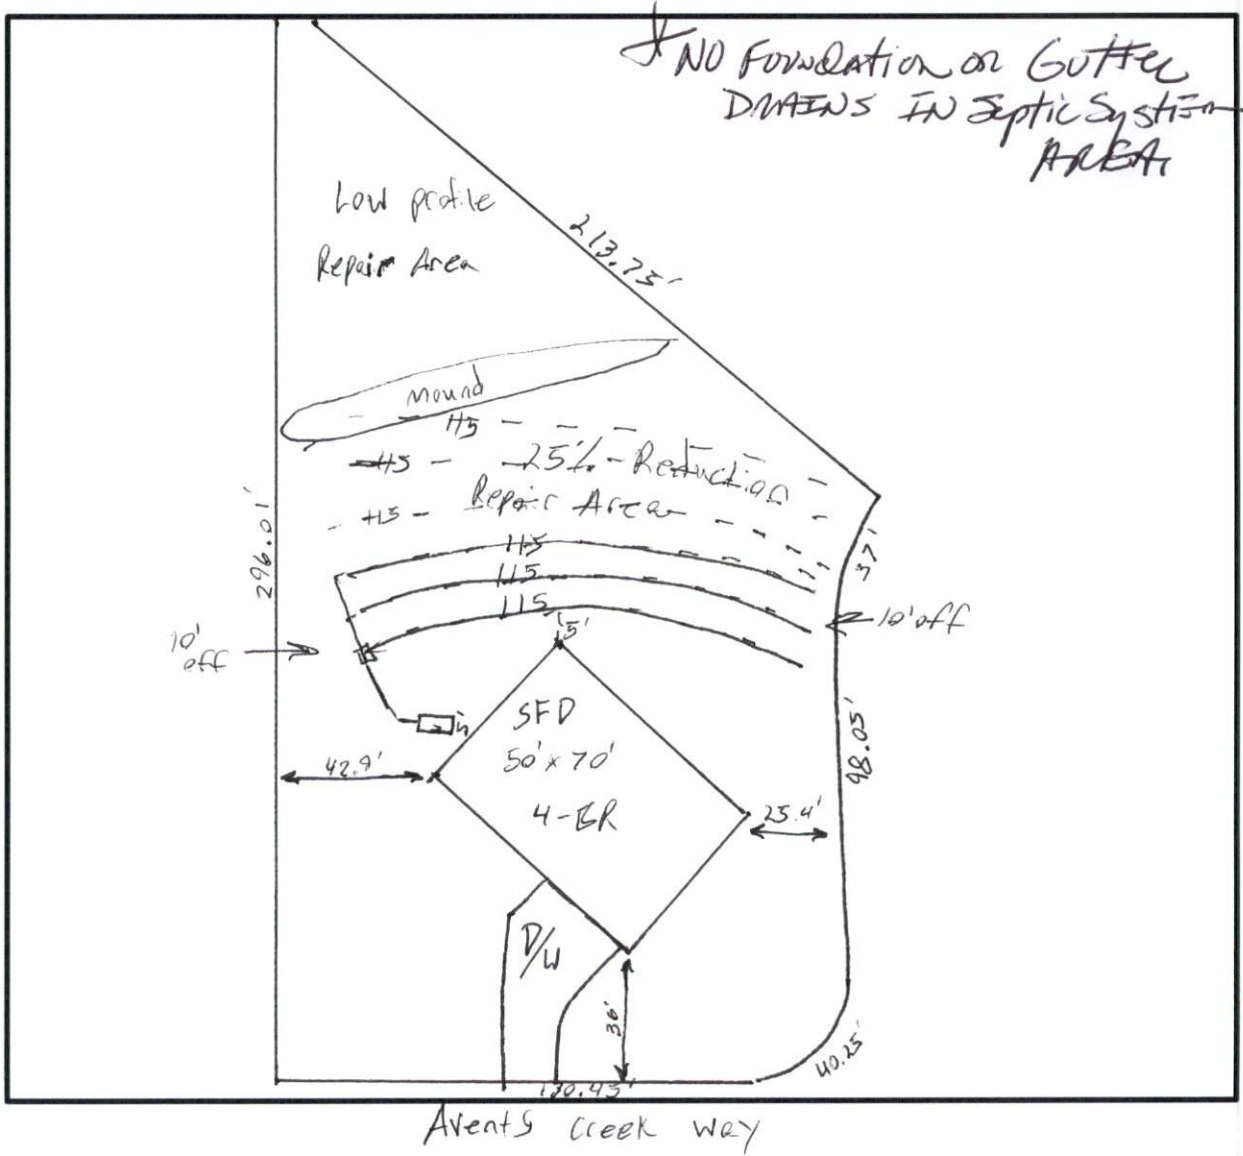 * NO FOUNDATION OR GUTTER
DRAINS IN Septic System
AREA
Low profile
Repair Area
213.75'
Mound
115
115
25% Reduction
115
Repair Area
296.01'
37'
115
115
115
10' off
10'
off
5'
SFD
50' x 70'
4-BR
42.9'
98.05'
25.4'
D/W
36'
40.25'
Avents Creek Way